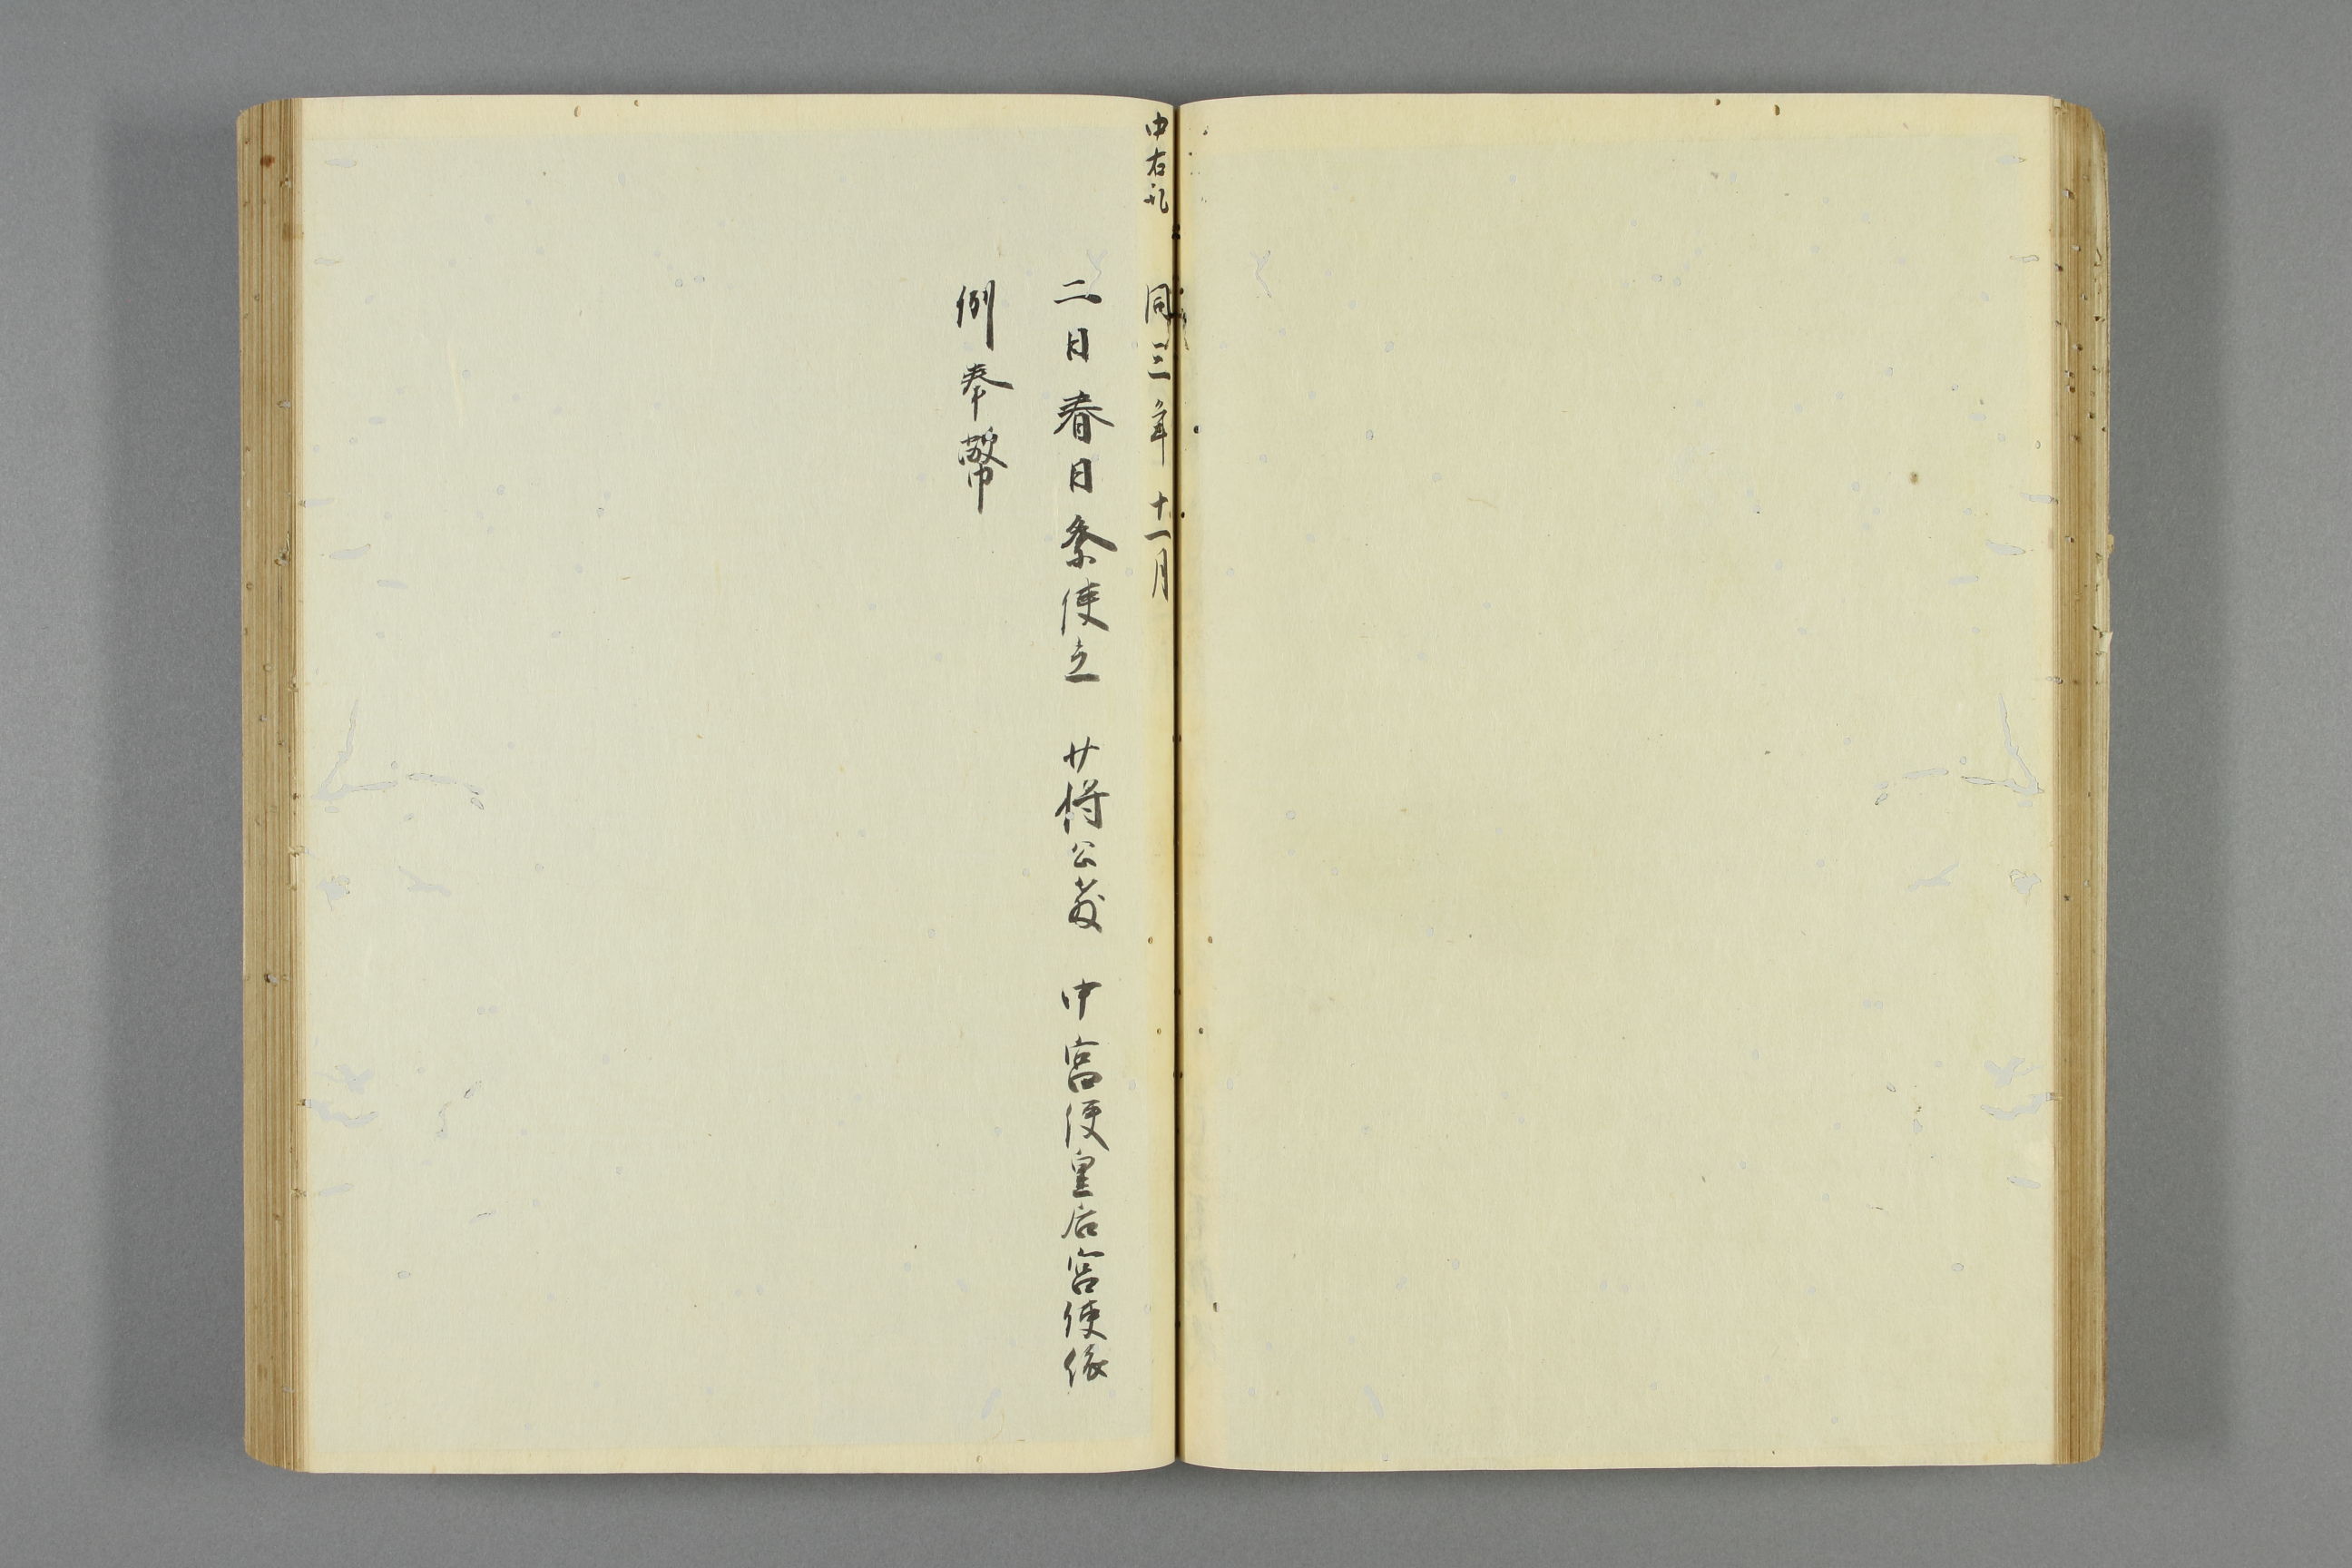 中右記
同三年十一月
二日春日祭使立 少将公 中宮使皇后宮使依
例奉幣